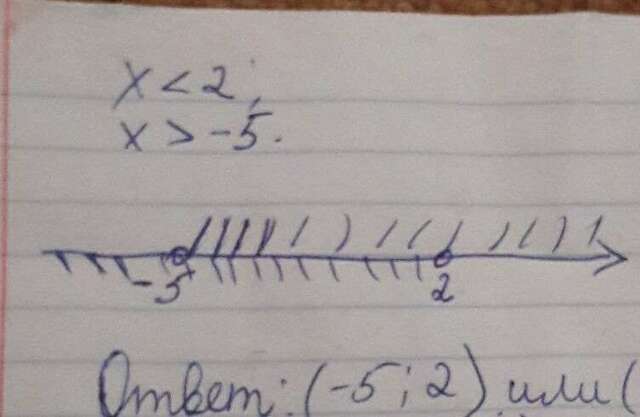 x < 2;
x > -5.
-5 2
Ответ: (-5; 2) или (